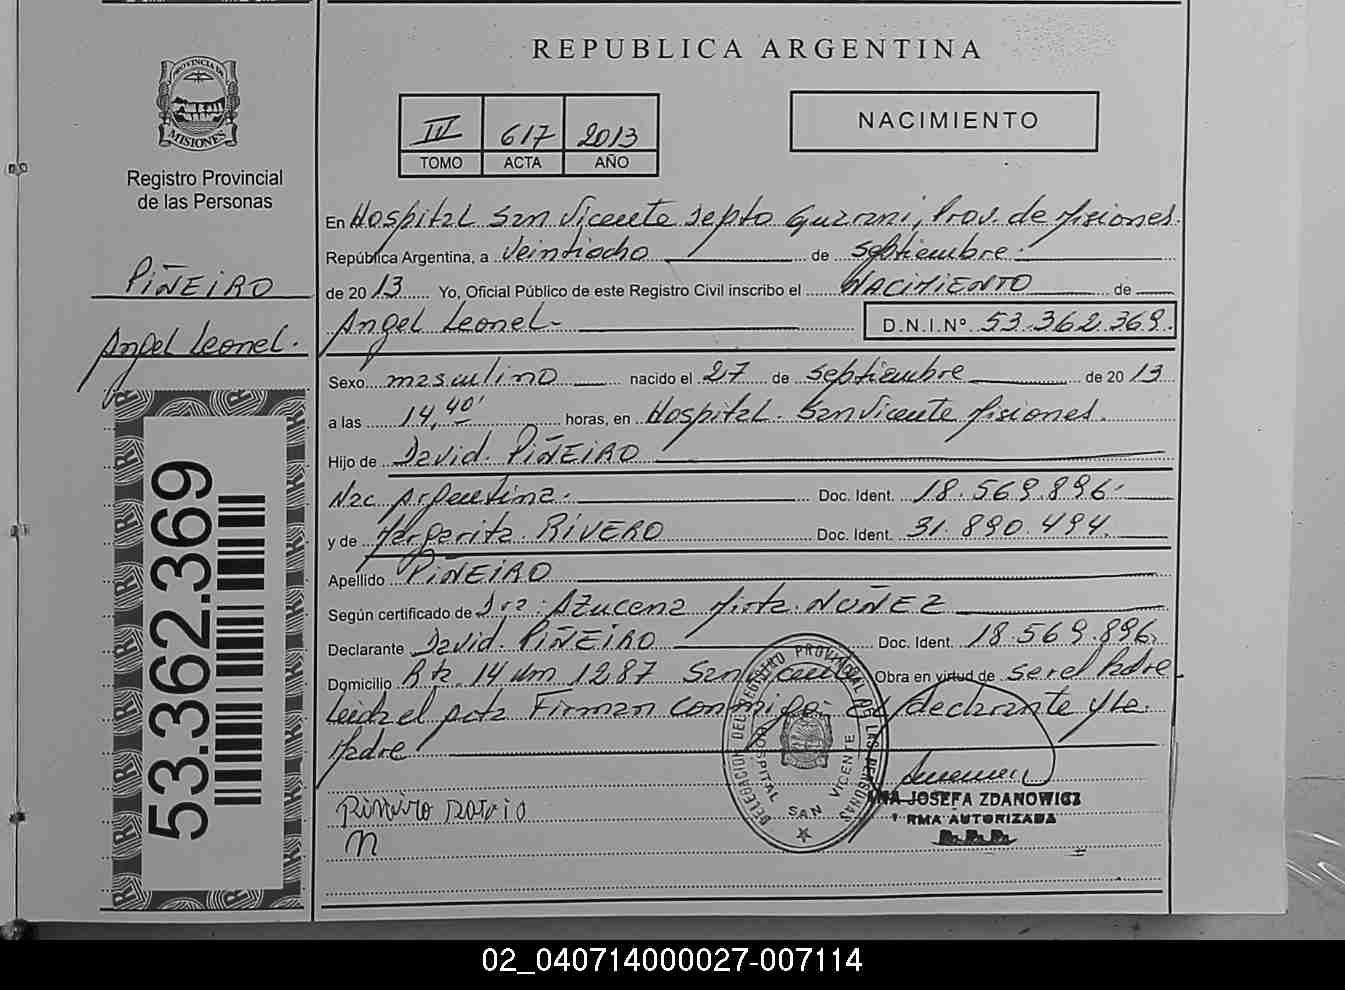 REPUBLICA ARGENTINA
PROVINCIA DE MISIONES
Registro Provincial
de las Personas
PIÑEIRO
Angel Leonel.
53.362.369
IV 617 2013
TOMO ACTA AÑO
NACIMIENTO
En Hospital San Vicente Depto Guarani, Prov. de Misiones.
República Argentina, a Veintiocho de Septiembre
de 2013 Yo, Oficial Público de este Registro Civil inscribo el NACIMIENTO de
Angel Leonel. D.N.I.Nº 53.362.369.
Sexo masculino nacido el 27 de Septiembre de 2013
a las 14,40' horas, en Hospital San Vicente Misiones.
Hijo de David PIÑEIRO
Nac Argentina. Doc. Ident. 18.569.896.
y de Margarita RIVERO Doc. Ident. 31.890.494.
Apellido PIÑEIRO
Según certificado de Dra. Azucena Mirta NUÑEZ
Declarante David PIÑEIRO Doc. Ident. 18.569.896.
Domicilio Rta 14 Km 1287 San Vicente Obra en virtud de ser el Padre
Leida el acta Firman conmigo el declarante y la
Madre
DELEGACION DEL REGISTRO PROVINCIAL DE LAS PERSONAS
HOSPITAL SAN VICENTE
ANA JOSEFA ZDANOWICZ
FIRMA AUTORIZADA
R.P.P.
02_040714000027-007114